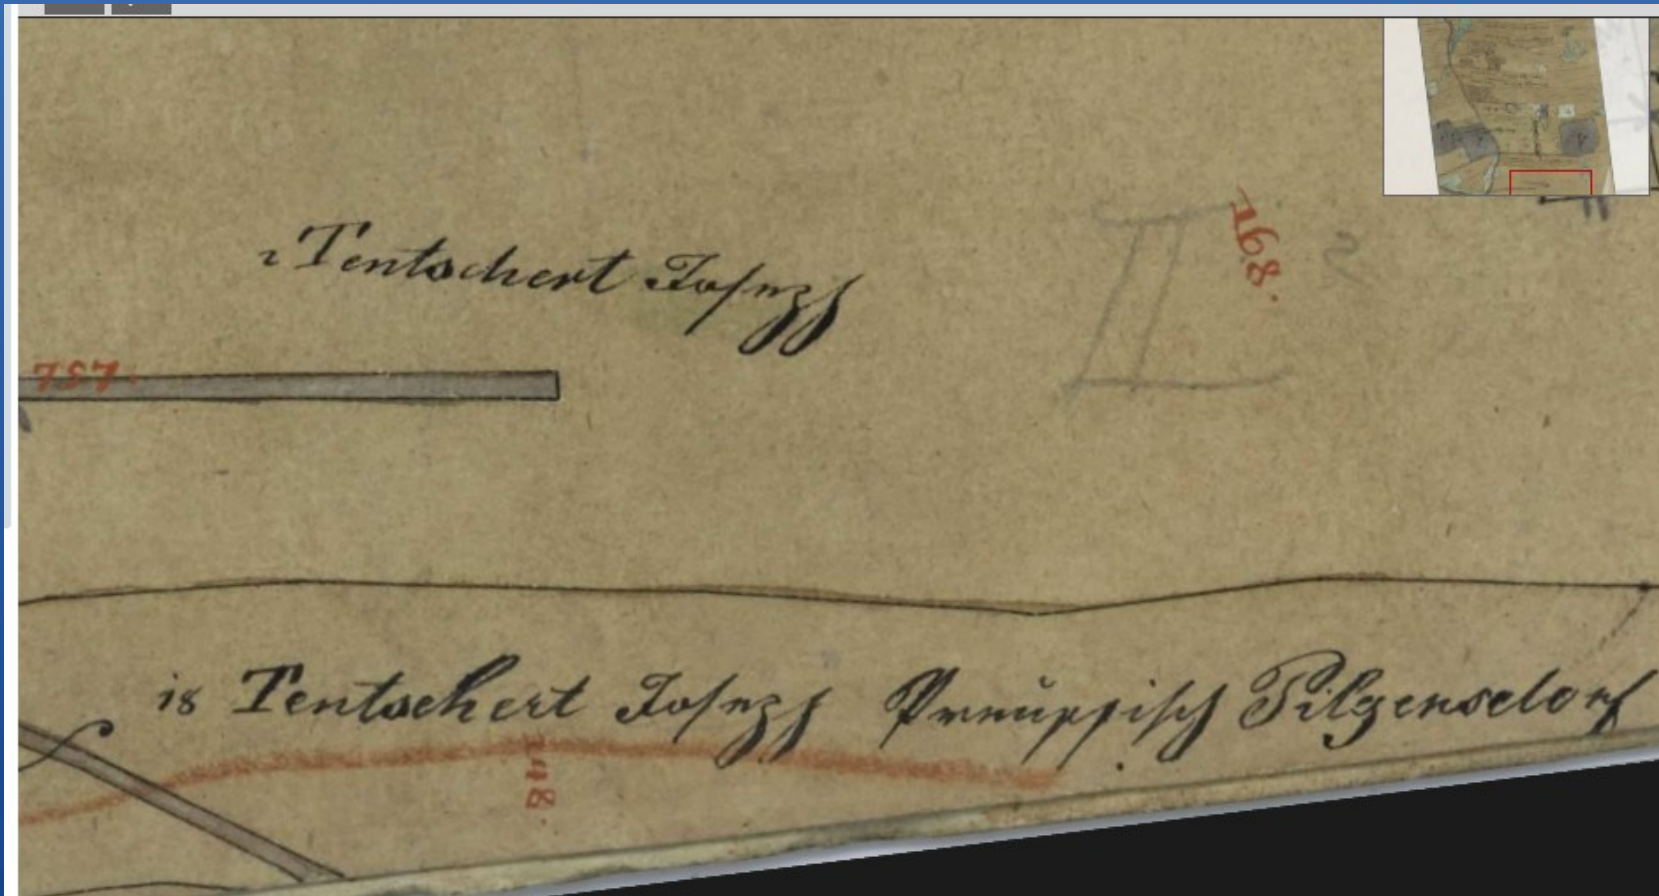 168.
2
1 Tentschert Josef
II
757.
18 Tentschert Josef Preußisch Pilgersdorf
148.